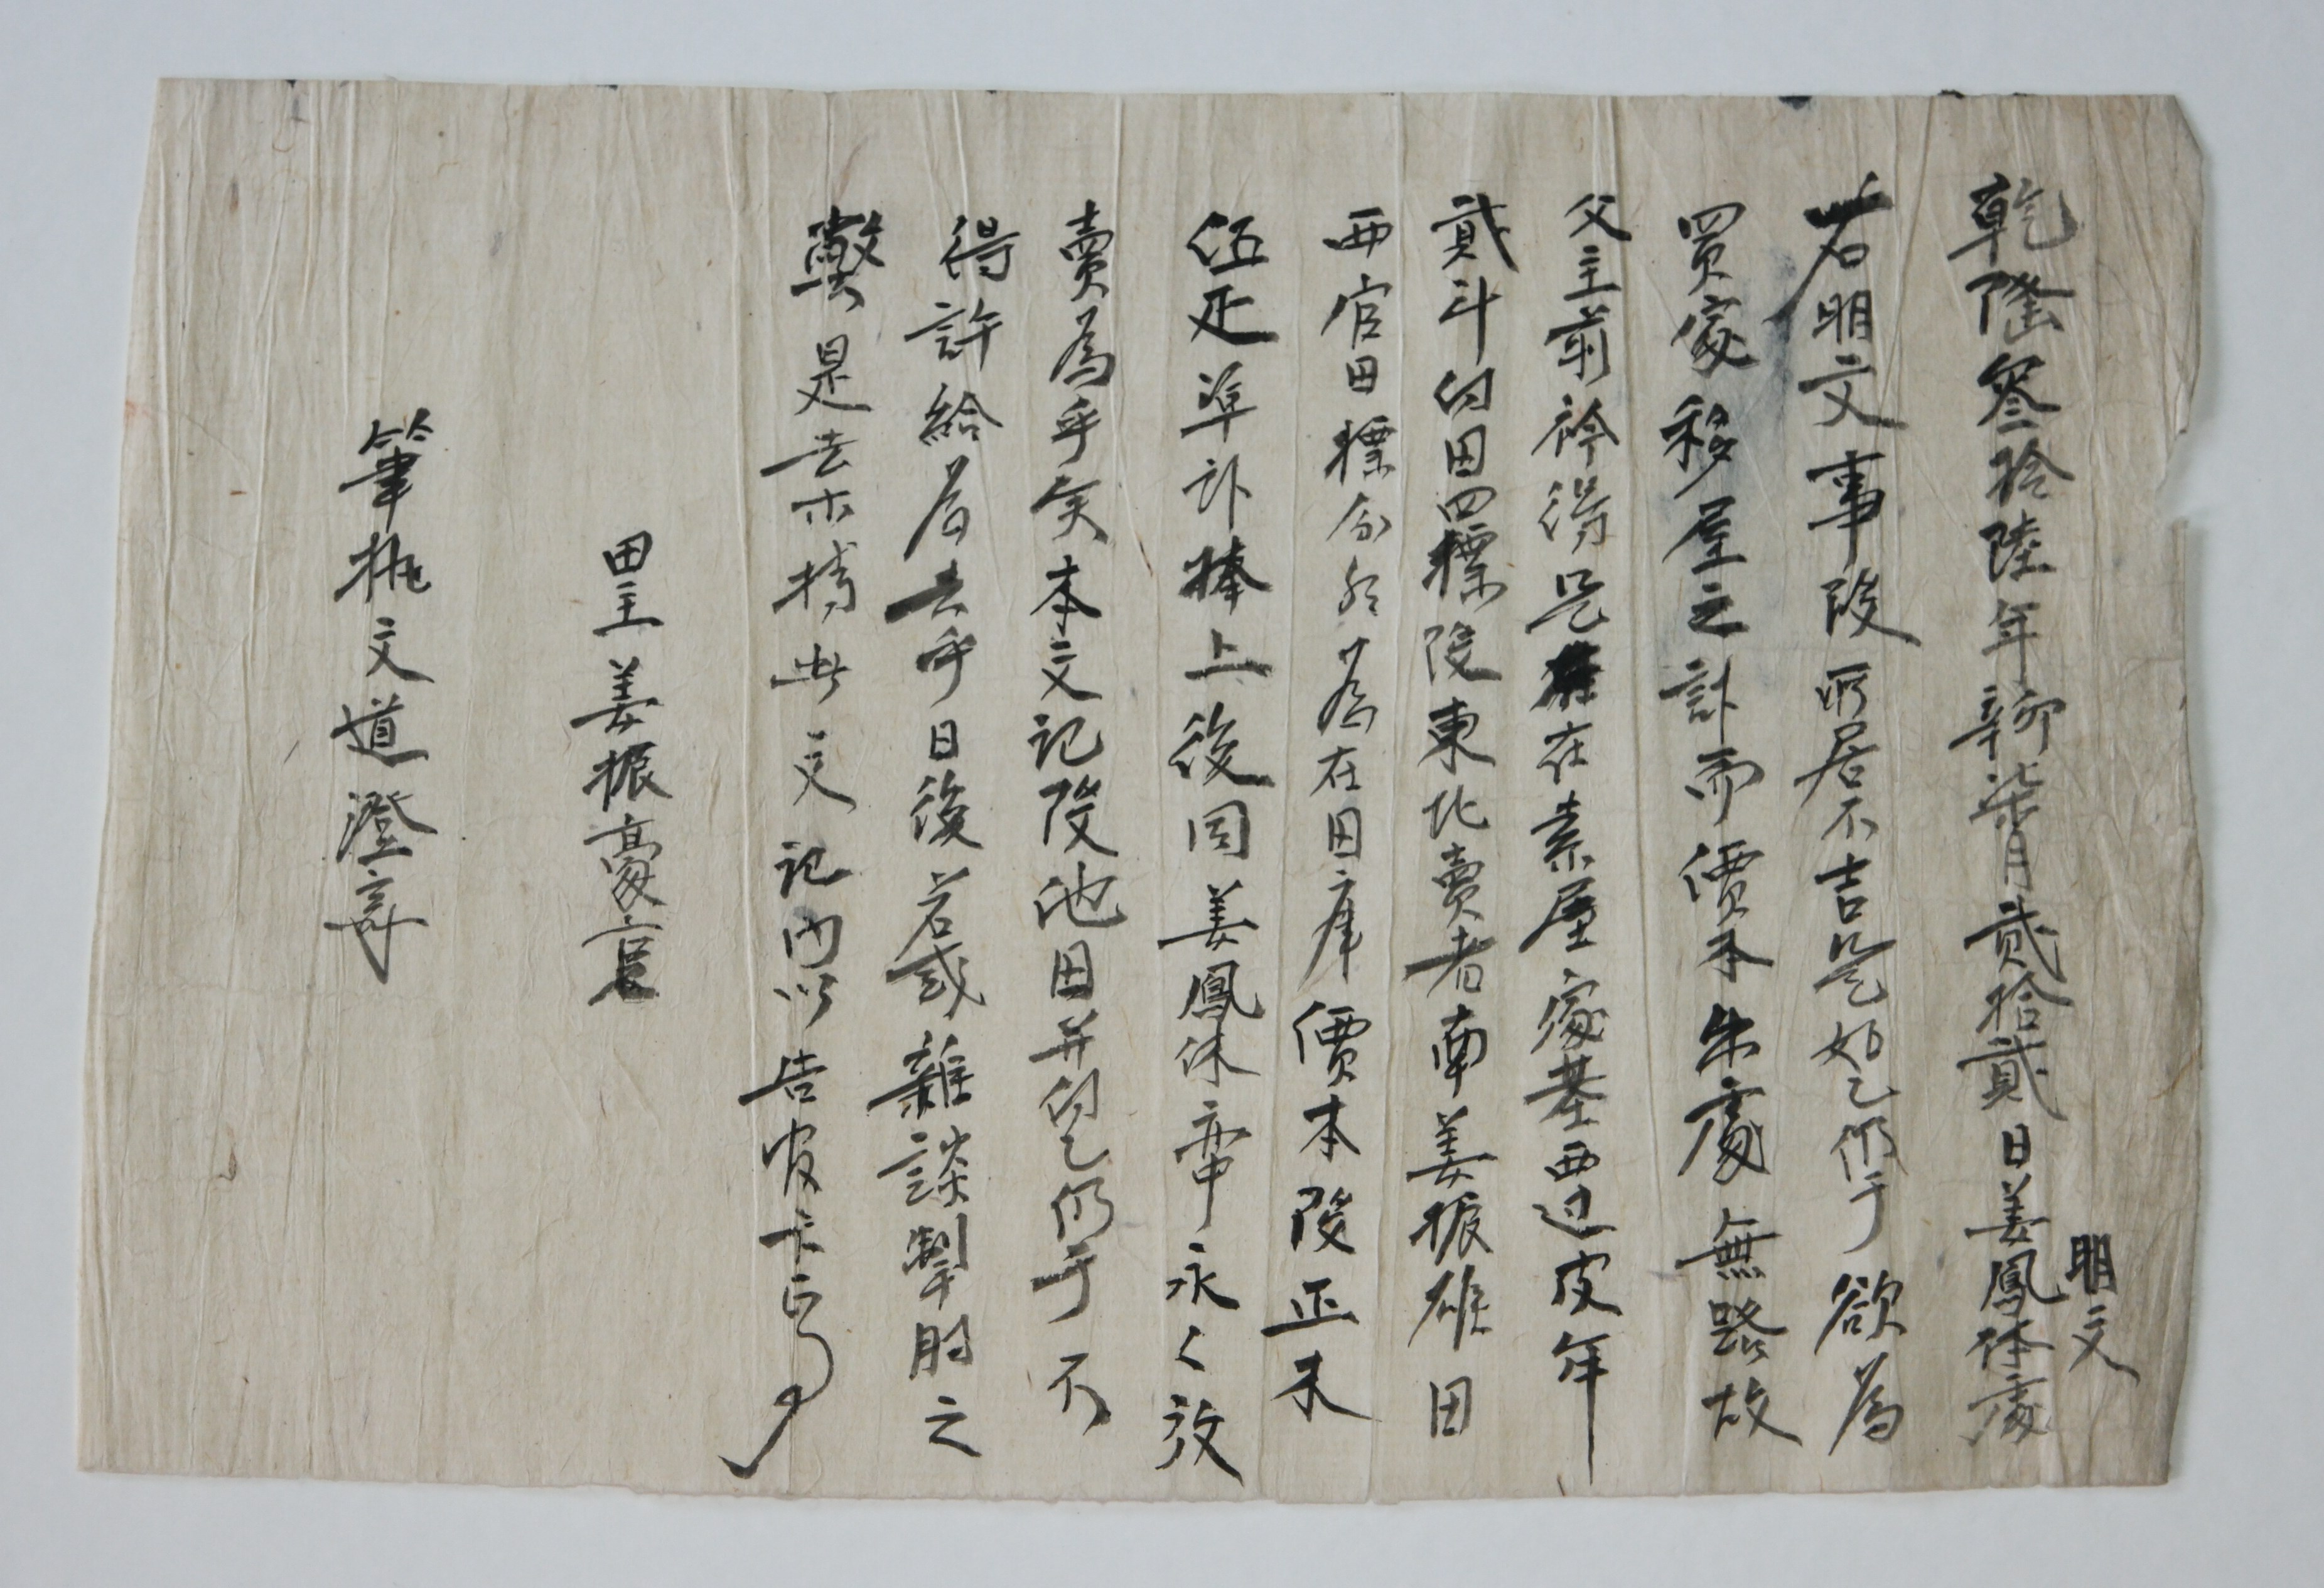 乾隆叄拾陸年辛卯柒月貳拾貳日姜鳳休處
明文
右明文事段所居不吉是如乙仍于欲爲
買家移屋之計而價本出處無路故
父主前衿得是在素屋家基西边皮牟
貳斗付田四標段東北賣者南姜振雄田
西官田標分明爲在田庫價本段正木
伍疋準計捧上後同姜鳳休亦中永々放
賣爲乎矣本文記段他田并付乙仍于不
得許給爲去乎日後若或雜談爭財之
弊是去等持此文記内以告官卞正事
田主姜振豪
筆執文道澄